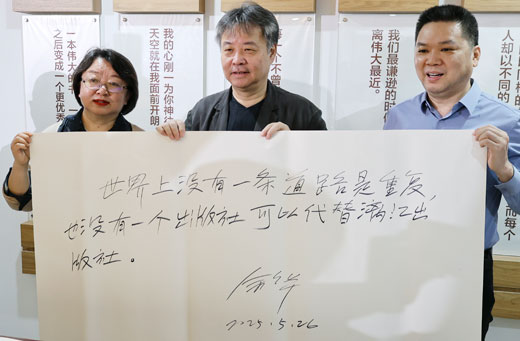 一本伟大的
之后变成一个更优秀
我的心刚一为你神往
天空就在我面前开朗
不曾
我们最谦逊的时
离伟大最近。
人却以不同的
世界上没有一条道路是重复,
也没有一个出版社可以代替漓江出
版社。
余华
2025.5.26